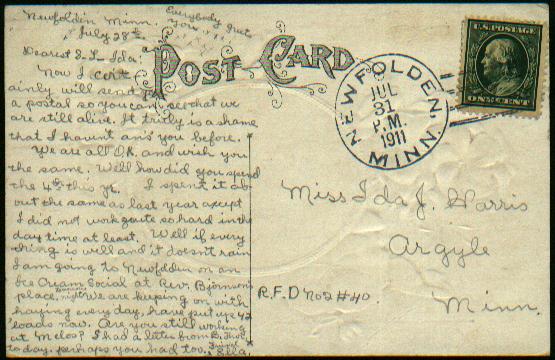 Newfolden Minn. Everybody gets
yours!!!
July 28th
Dearest S. L. Ida:
Now I cert-
ainly will send
a postal so you can see what we
are still alive. It truly is a shame
that I havn't ans you before.
We are all O.K. and wish you
the same. Well how did you spend
the 4th this yr. I spent it ab-
out the same as last year except
I did not work quite so hard in the
day time at least. Well if every
thing is well and it doesn't rain
I am going to Newfolden on an
Ice Cream Social at Rev. Bjornson's
place, night. We are keeping on with
haying every day, have put up 42
loads now. Are you still working
at Melos? I had a letter from
today. perhaps you had too. Ella.
POST CARD
NEWFOLDEN,
JUL
31
P.M.
1911
MINN.
U.S. POSTAGE
ONE CENT
Miss Ida J. Harris
Argyle
R.F.D No 2 #40
Minn.